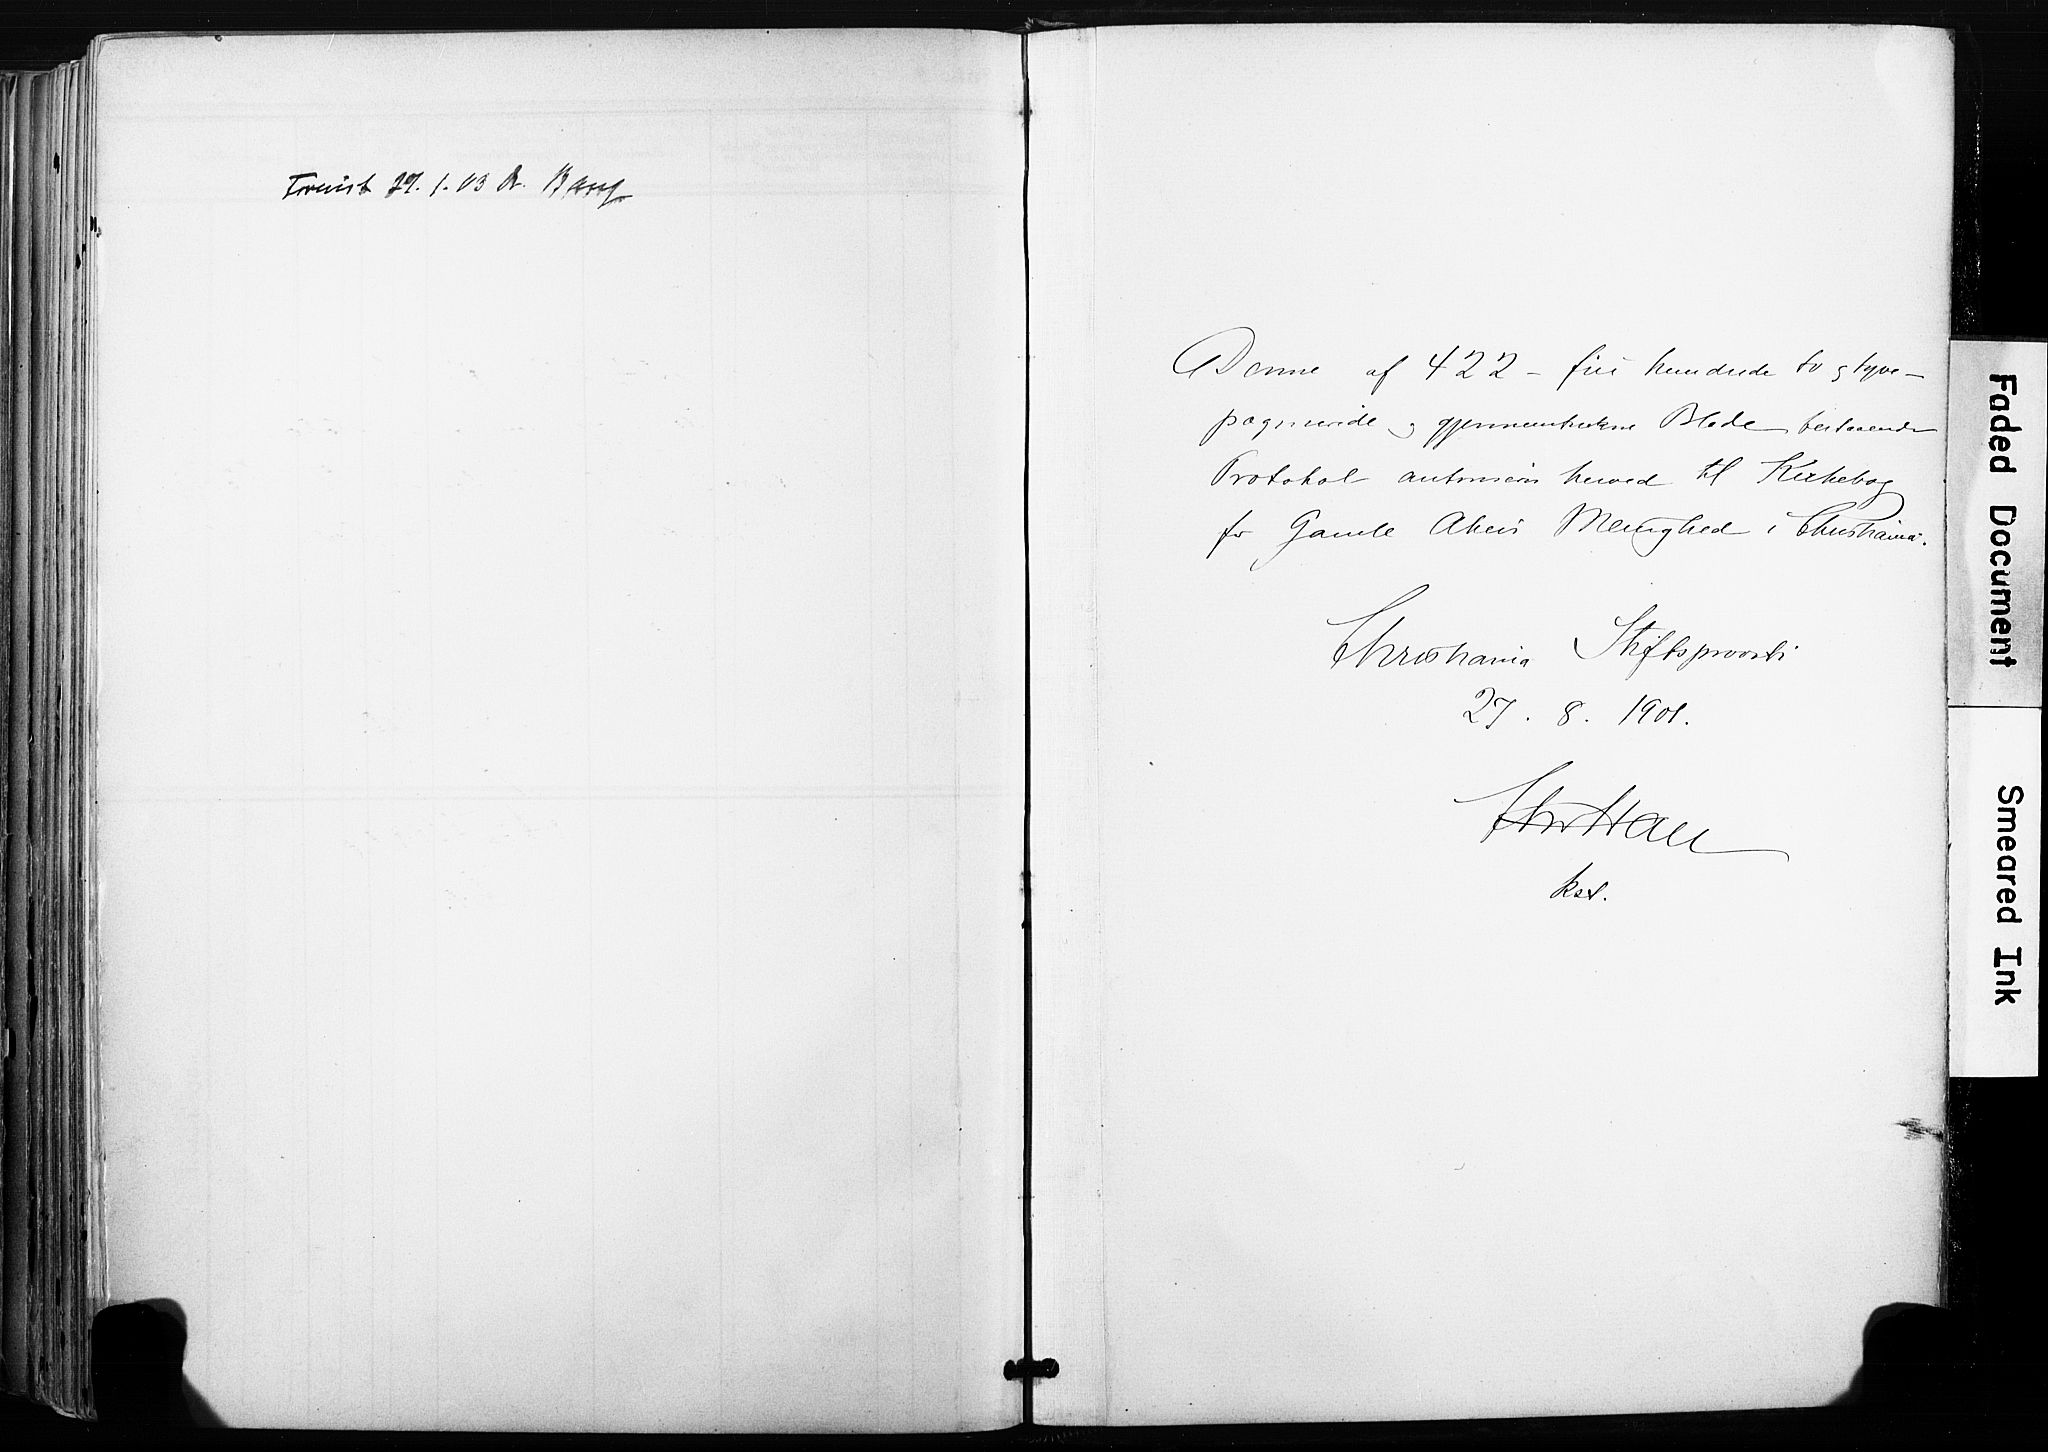 Forevist 27. 1. 03 A. Bang
Denne af 422 - fire hundrede to og tyve -
paginerede og gjennemtrukne Blade bestaaende
Protokol autoriseres herved til Kirkebog
for Gamle Akers Menighed i Christiania.
Christiania Stiftsprovsti
27. 8. 1901.
kst.
Faded Document
Smeared Ink